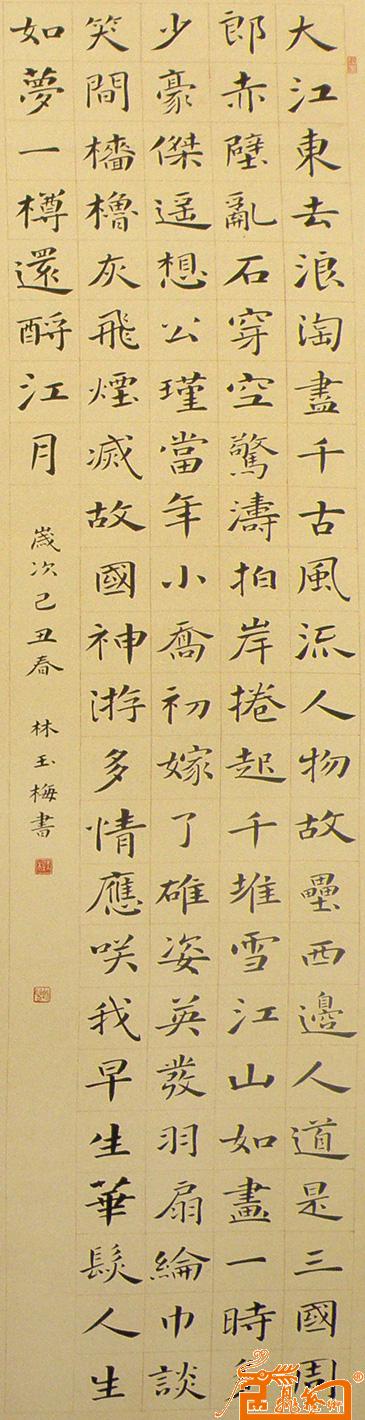 大江東去浪淘盡千古風流人物故壘西邊人道是三國周
郎赤壁亂石穿空驚濤拍岸捲起千堆雪江山如畫一時多
少豪傑遥想公瑾當年小喬初嫁了雄姿英發羽扇綸巾談
笑間檣櫓灰飛煙滅故國神游多情應咲我早生華髮人生
如夢一樽還酹江月
歲次己丑春 林玉梅書